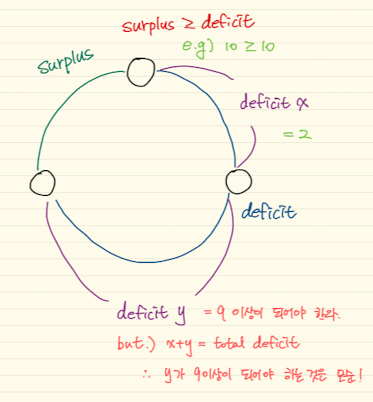 surplus ≥ deficit
e.g) 10 ≥ 10
surplus
deficit x
= 2
deficit
deficit y = 9 이상이 되어야 한다.
but.) x+y = total deficit
∴ y가 9이상이 되어야 하는것은 모순!